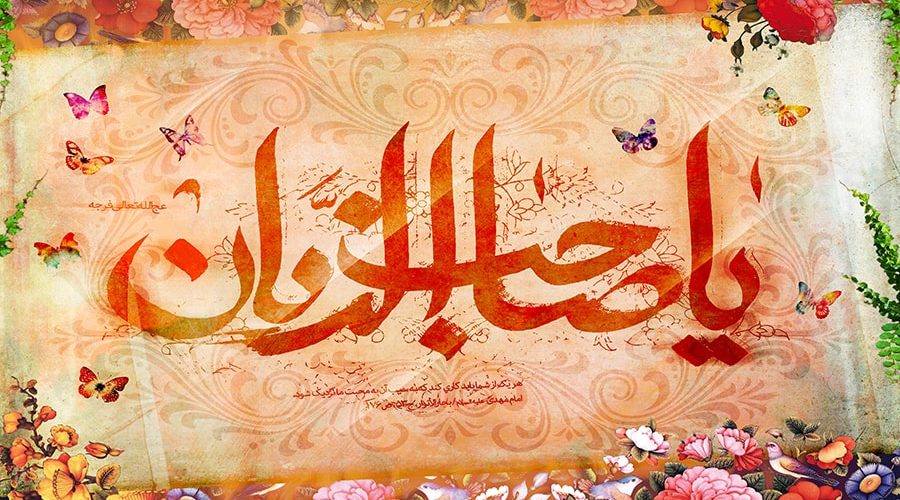 یا صاحب الزمان
عجل الله تعالی فرجه
هر یک از شما باید کاری کند که به سبب آن به محبت ما نزدیک شود.
امام مهدی علیه السلام / بحارالأنوار، ج ۵۳، ص ۱۷۶